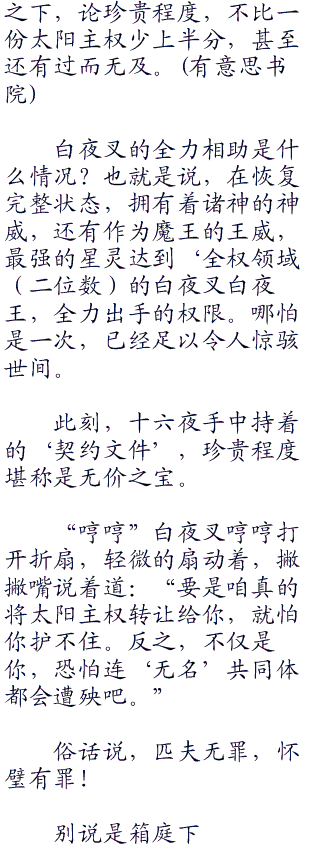 之下，论珍贵程度，不比一
份太阳主权少上半分，甚至
还有过而无及。(有意思书
院)
白夜叉的全力相助是什
么情况？也就是说，在恢复
完整状态，拥有着诸神的神
威，还有作为魔王的王威，
最强的星灵达到‘全权领域
（二位数）的白夜叉白夜
王，全力出手的权限。哪怕
是一次，已经足以令人惊骇
世间。
此刻，十六夜手中持着
的‘契约文件’，珍贵程度
堪称是无价之宝。
“哼哼”白夜叉哼哼打
开折扇，轻微的扇动着，撇
撇嘴说着道：“要是咱真的
将太阳主权转让给你，就怕
你护不住。反之，不仅是
你，恐怕连‘无名’共同体
都会遭殃吧。”
俗话说，匹夫无罪，怀
璧有罪！
别说是箱庭下